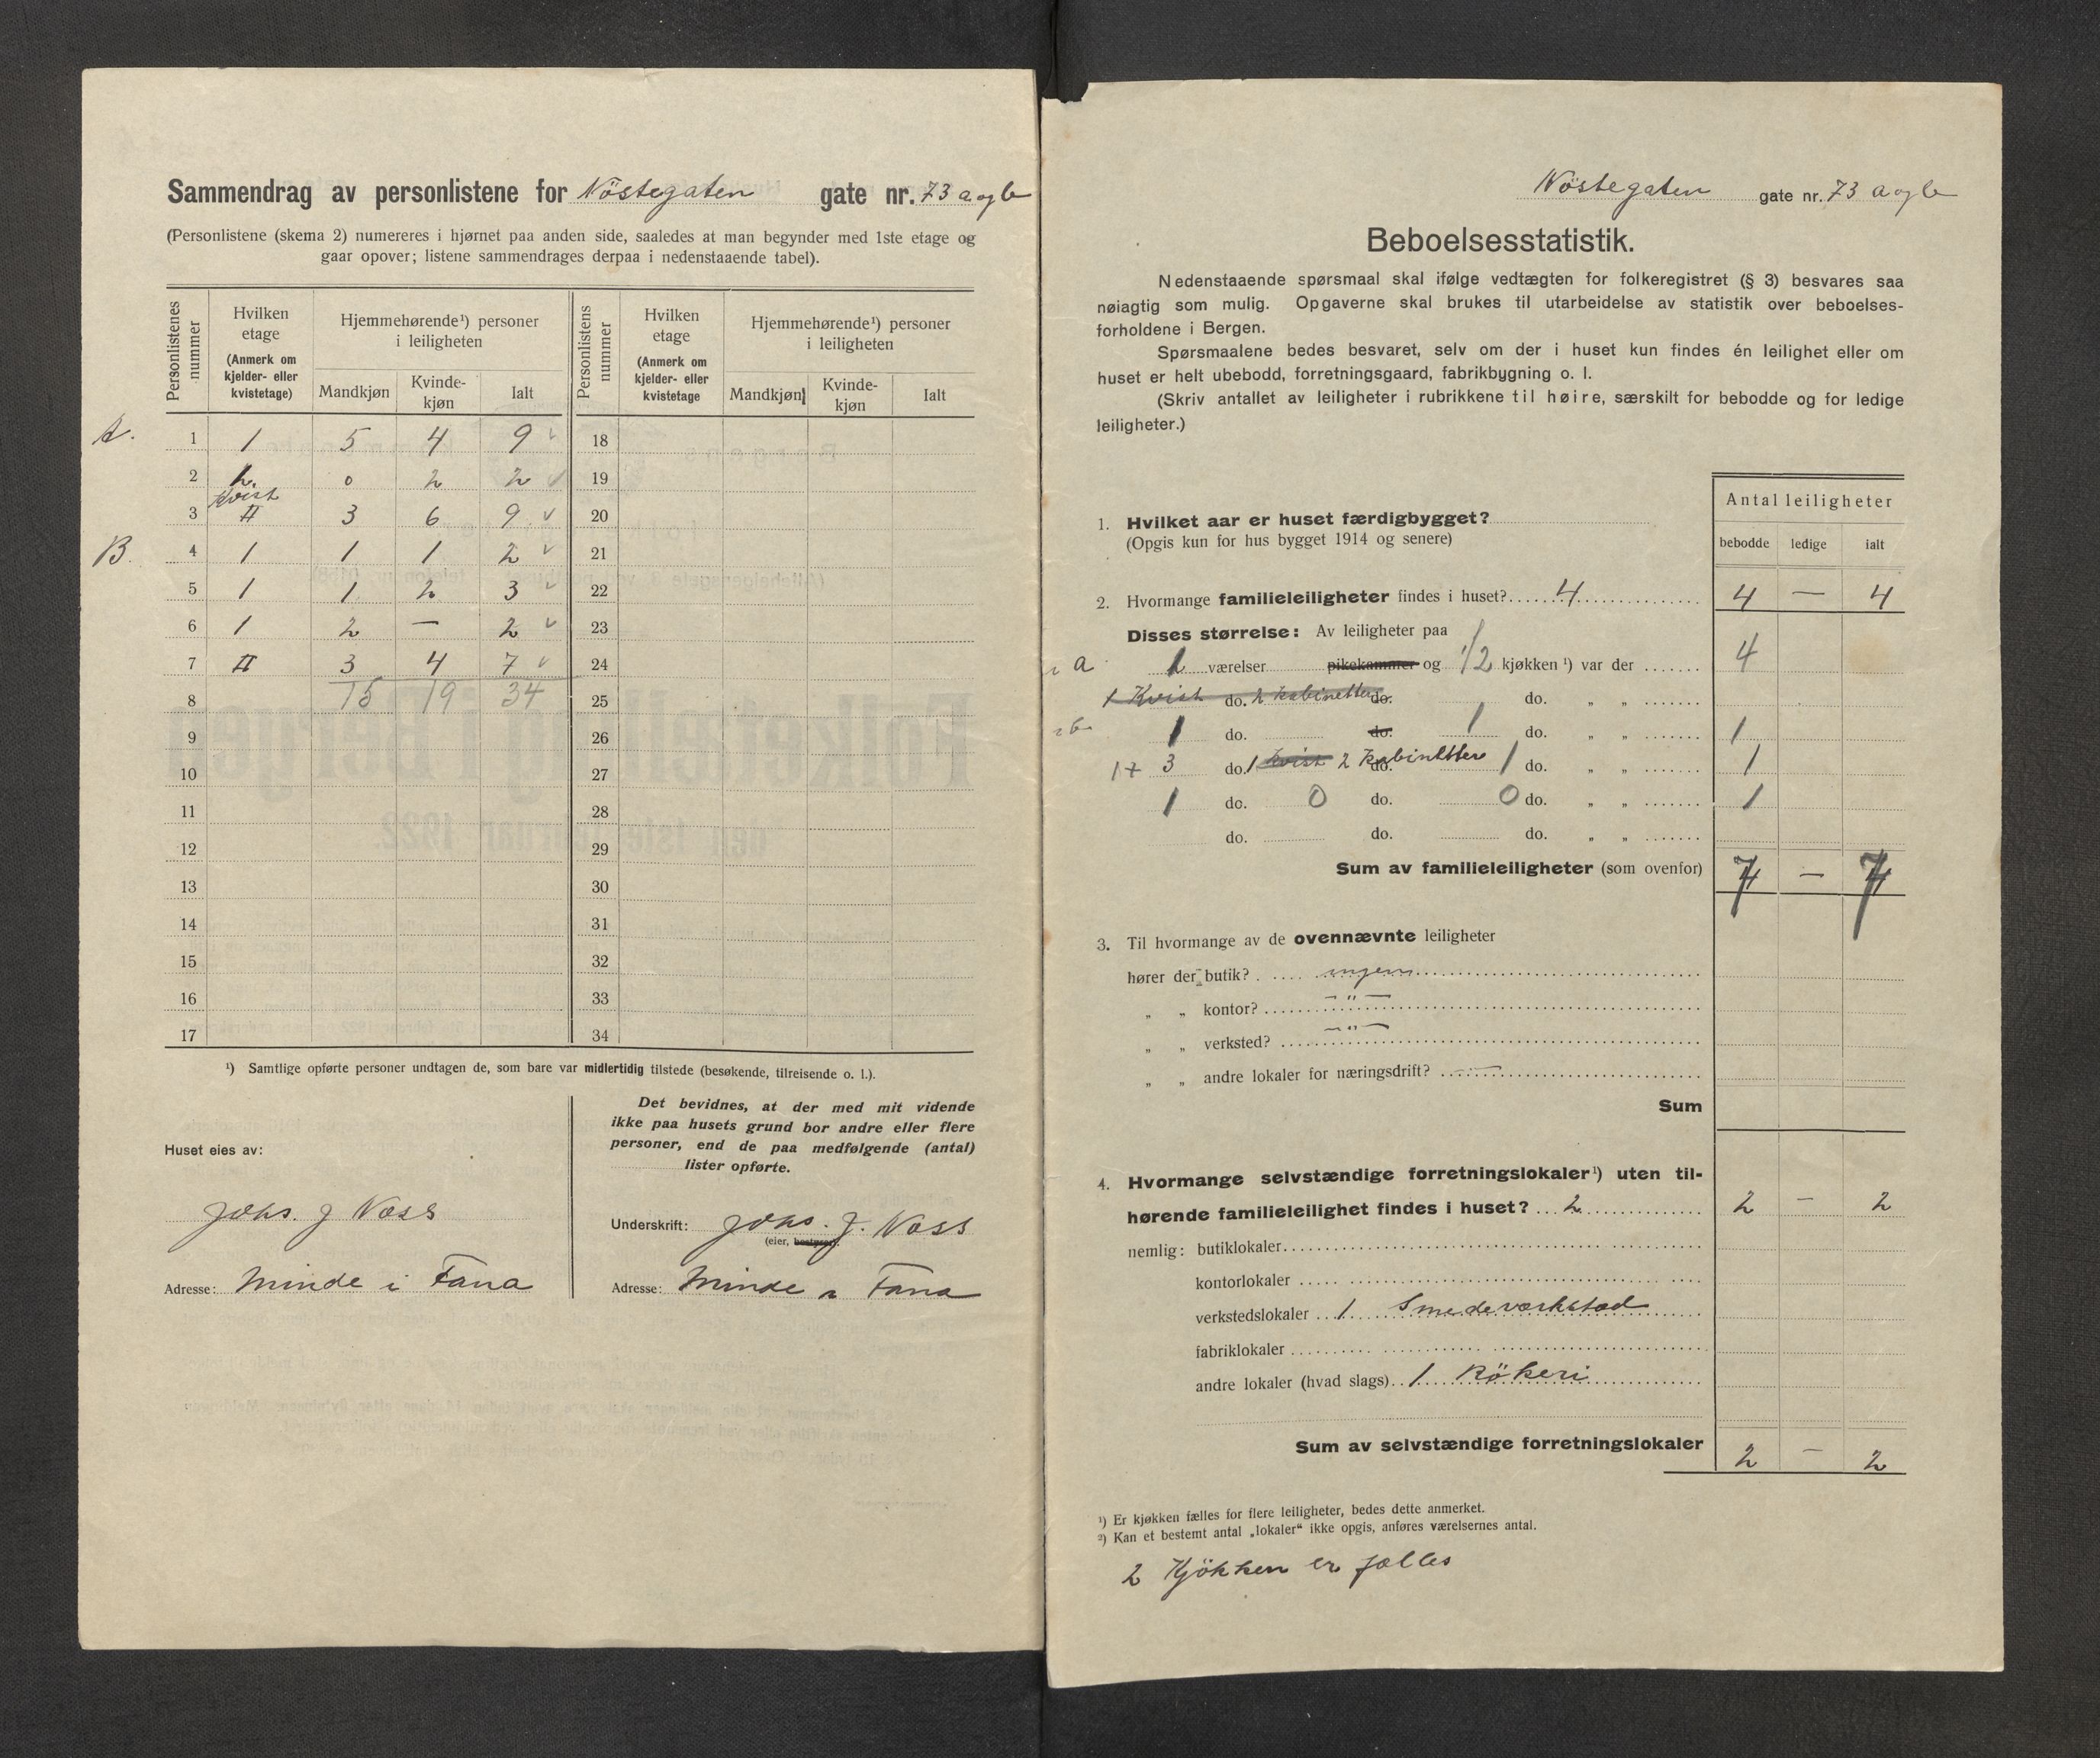 Sammendrag av personlistene for Nöstegaten gate nr. 73 a og b
(Personlistene (skema 2) numereres i hjørnet paa anden side, saaledes at man begynder med 1ste etage og
gaar opover; listene sammendrages derpaa i nedenstaaende tabel).
Personlistenes nummer | Hvilken etage (Anmerk om kjelder- eller kvistetage) | Hjemmehørende¹) personer i leiligheten | Personlistens nummer | Hvilken etage (Anmerk om kjelder- eller kvistetage | Hjemmehørende¹) personer i leiligheten
Mandkjøn | Kvinde-kjøn | Ialt | Mandkjøn | Kvinde-kjøn | Ialt
A. 1 1 5 4 9 18
2 Kvist 0 2 2 19
3 II 3 6 9 20
B. 4 1 1 1 2 21
5 1 1 2 3 22
6 1 2 — 2 23
7 II 3 4 7 24
8 15 19 34 25
9 26
10 27
11 28
12 29
13 30
14 31
15 32
16 33
17 34
¹) Samtlige opførte personer undtagen de, som bare var midlertidig tilstede (besøkende, tilreisende o. l.).
Huset eies av:
Johs. J Voss
Adresse: Minde i Fana
Det bevidnes, at der med mit vidende
ikke paa husets grund bor andre eller flere
personer, end de paa medfølgende (antal)
lister opførte.
Underskrift: Johs. J. Voss
(eier, bestyrer).
Adresse: Minde i Fana
Nöstegaten gate nr. 73 a og b
Beboelsesstatistik.
Nedenstaaende spørsmaal skal ifølge vedtægten for folkeregistret (§ 3) besvares saa
nøiagtig som mulig. Opgaverne skal brukes til utarbeidelse av statistik over beboelses-
forholdene i Bergen.
Spørsmaalene bedes besvaret, selv om der i huset kun findes én leilighet eller om
huset er helt ubebodd, forretningsgaard, fabrikbygning o. l.
(Skriv antallet av leiligheter i rubrikkene til høire, særskilt for bebodde og for ledige
leiligheter.)
Antal leiligheter
bebodde ledige ialt
1. Hvilket aar er huset færdigbygget?
(Opgis kun for hus bygget 1914 og senere)
2. Hvormange familieleiligheter findes i huset? 4 4 — 4
Disses størrelse: Av leiligheter paa
a 1 værelser pikekammer og 1/2 kjøkken ¹) var der 4
1 Kvist do. 2 kabinetter do. do. „ „
b 1 do. do. 1 do. „ „ 1
1+ 3 do. 1 Kvist 2 kabinetter do. 1 do. „ „ 1
1 do. 0 do. 0 do. „ „ 1
do. do. do. „ „
Sum av familieleiligheter (som ovenfor) 7 — 7
3. Til hvormange av de ovennævnte leiligheter
hører der butik? ingen
„ „ kontor? — " —
„ „ verksted? — " —
„ „ andre lokaler for næringsdrift? —
Sum
4. Hvormange selvstændige forretningslokaler¹) uten til-
hørende familieleilighet findes i huset? 2 2 — 2
nemlig: butiklokaler
kontorlokaler
verkstedslokaler 1 Smedeværksted
fabriklokaler
andre lokaler (hvad slags) 1 Rökeri
Sum av selvstændige forretningslokaler 2 — 2
¹) Er kjøkken fælles for flere leiligheter, bedes dette anmerket.
²) Kan et bestemt antal „lokaler“ ikke opgis, anføres værelsernes antal.
2 Kjökken er fælles